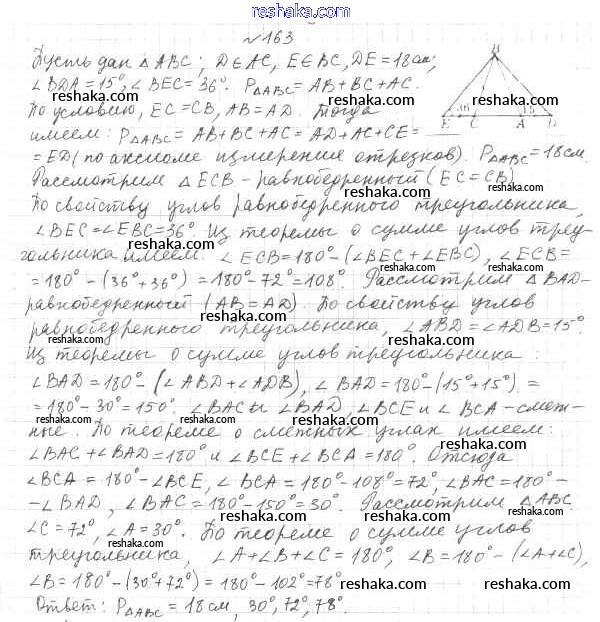 www.reshaka.com
№163
Пусть дан △ABC; D∈AC, E∈BC, DE=18см;
∠BDA=15°, ∠BEC=36°. P△ABC = AB+BC+AC.
По условию, EC=CB, AB=AD. Тогда
имеем: P△ABC = AB+BC+AC=AD+AC+CE=
=ED (по аксиоме измерения отрезков). P△ABC=18см.
Рассмотрим △ECB-равнобедренный (EC=CB)
По свойству углов равнобедренного треугольника,
∠BEC=∠EBC=36°. Из теоремы о сумме углов треу-
гольника имеем: ∠ECB=180°-(∠BEC+∠EBC), ∠ECB=
=180°-(36°+36°)=180°-72°=108°. Рассмотрим △BAD-
равнобедренный (AB=AD). По свойству углов
равнобедренного треугольника, ∠ABD=∠ADB=15°
Из теоремы о сумме углов треугольника:
∠BAD=180°-(∠ABD+∠ADB), ∠BAD=180°-(15°+15°)=
=180°-30°=150°. ∠BAC и ∠BAD, ∠BCE и ∠BCA-смеж-
ные. По теореме о смежных углах имеем:
∠BAC+∠BAD=180° и ∠BCE+∠BCA=180°. Отсюда
∠BCA=180°-∠BCE, ∠BCA=180°-108°=72°, ∠BAC=180°-
-∠BAD, ∠BAC=180°-150°=30°. Рассмотрим △ABC
∠C=72°, ∠A=30°. По теореме о сумме углов
треугольника, ∠A+∠B+∠C=180°, ∠B=180°-(∠A+∠C),
∠B=180°-(30°+72°)=180°-102°=78°
Ответ: P△ABC=18см, 30°, 72°, 78°.
B
36 15
E C A D
reshaka.com